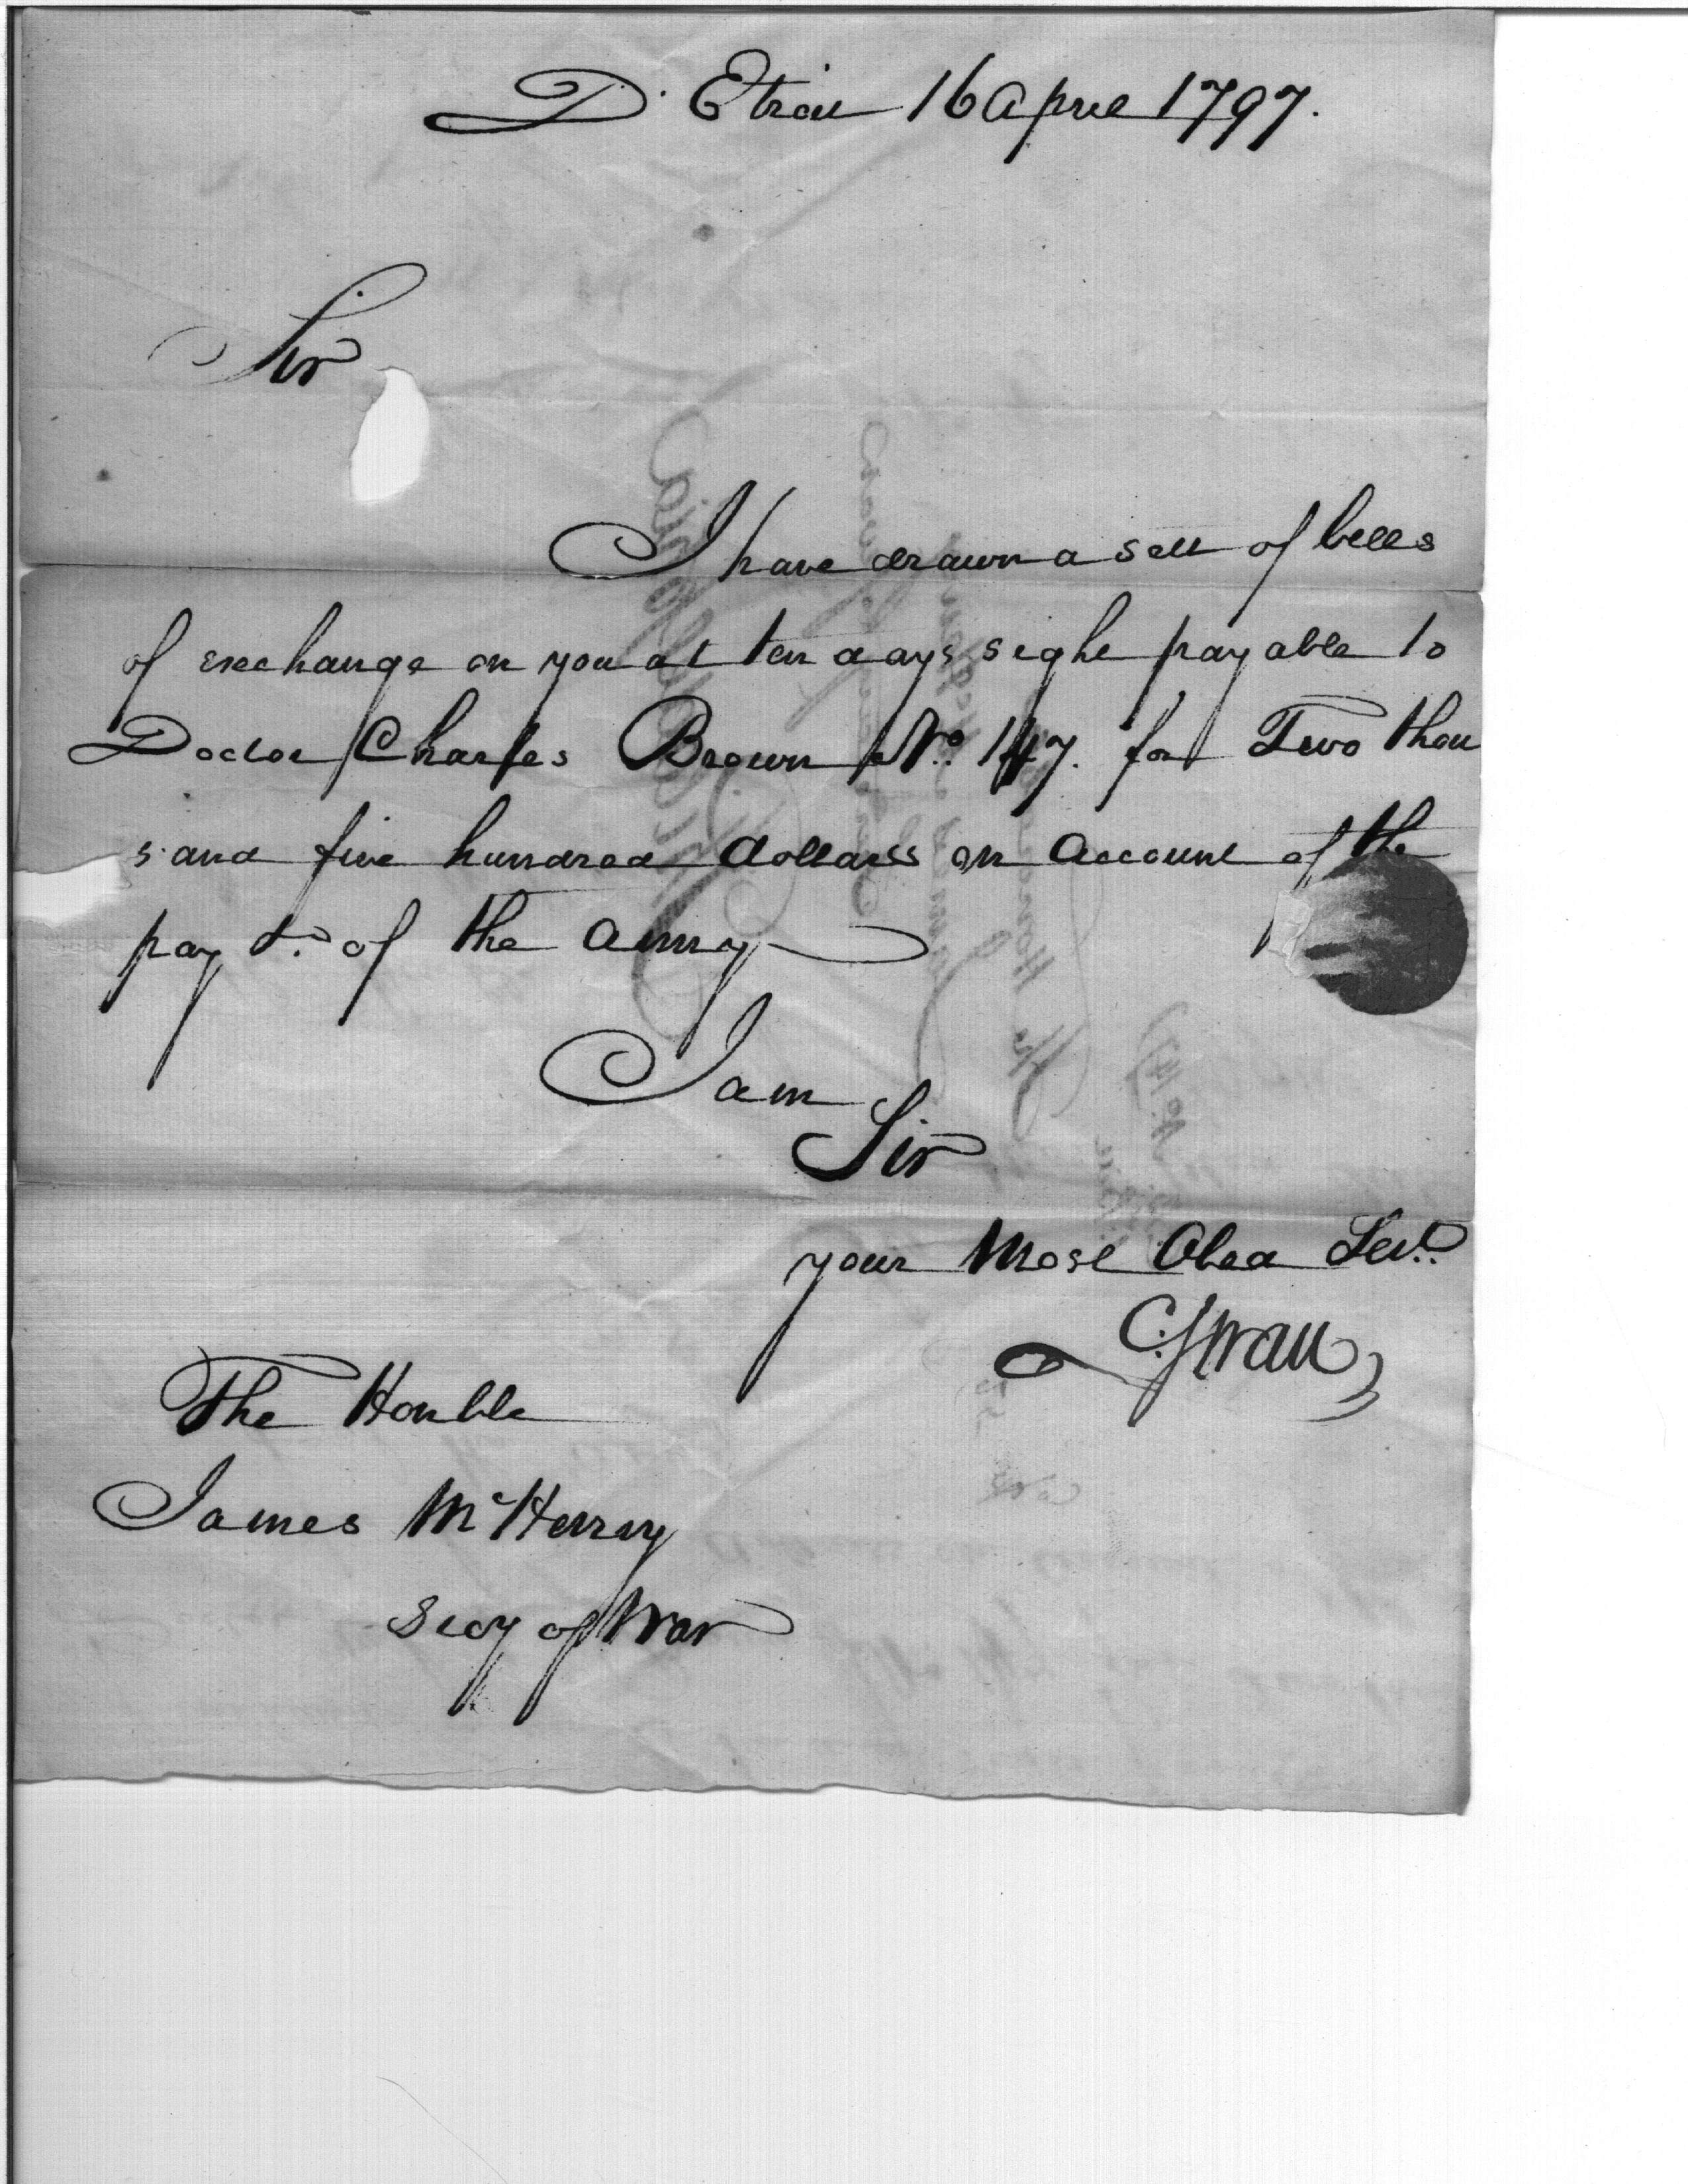 D. Etroit 16 April 1797.
Sir
I have drawn a sett of bills
of exchange on you at ten days sight payable to
Doctor Charles Brown No. 147. for Two thou
sand five hundred dollars on account of the
pay &c. of the army
I am
Sir
your Most Obed Servt.
C. Swan
The Honble
James McHenry
Secy of War